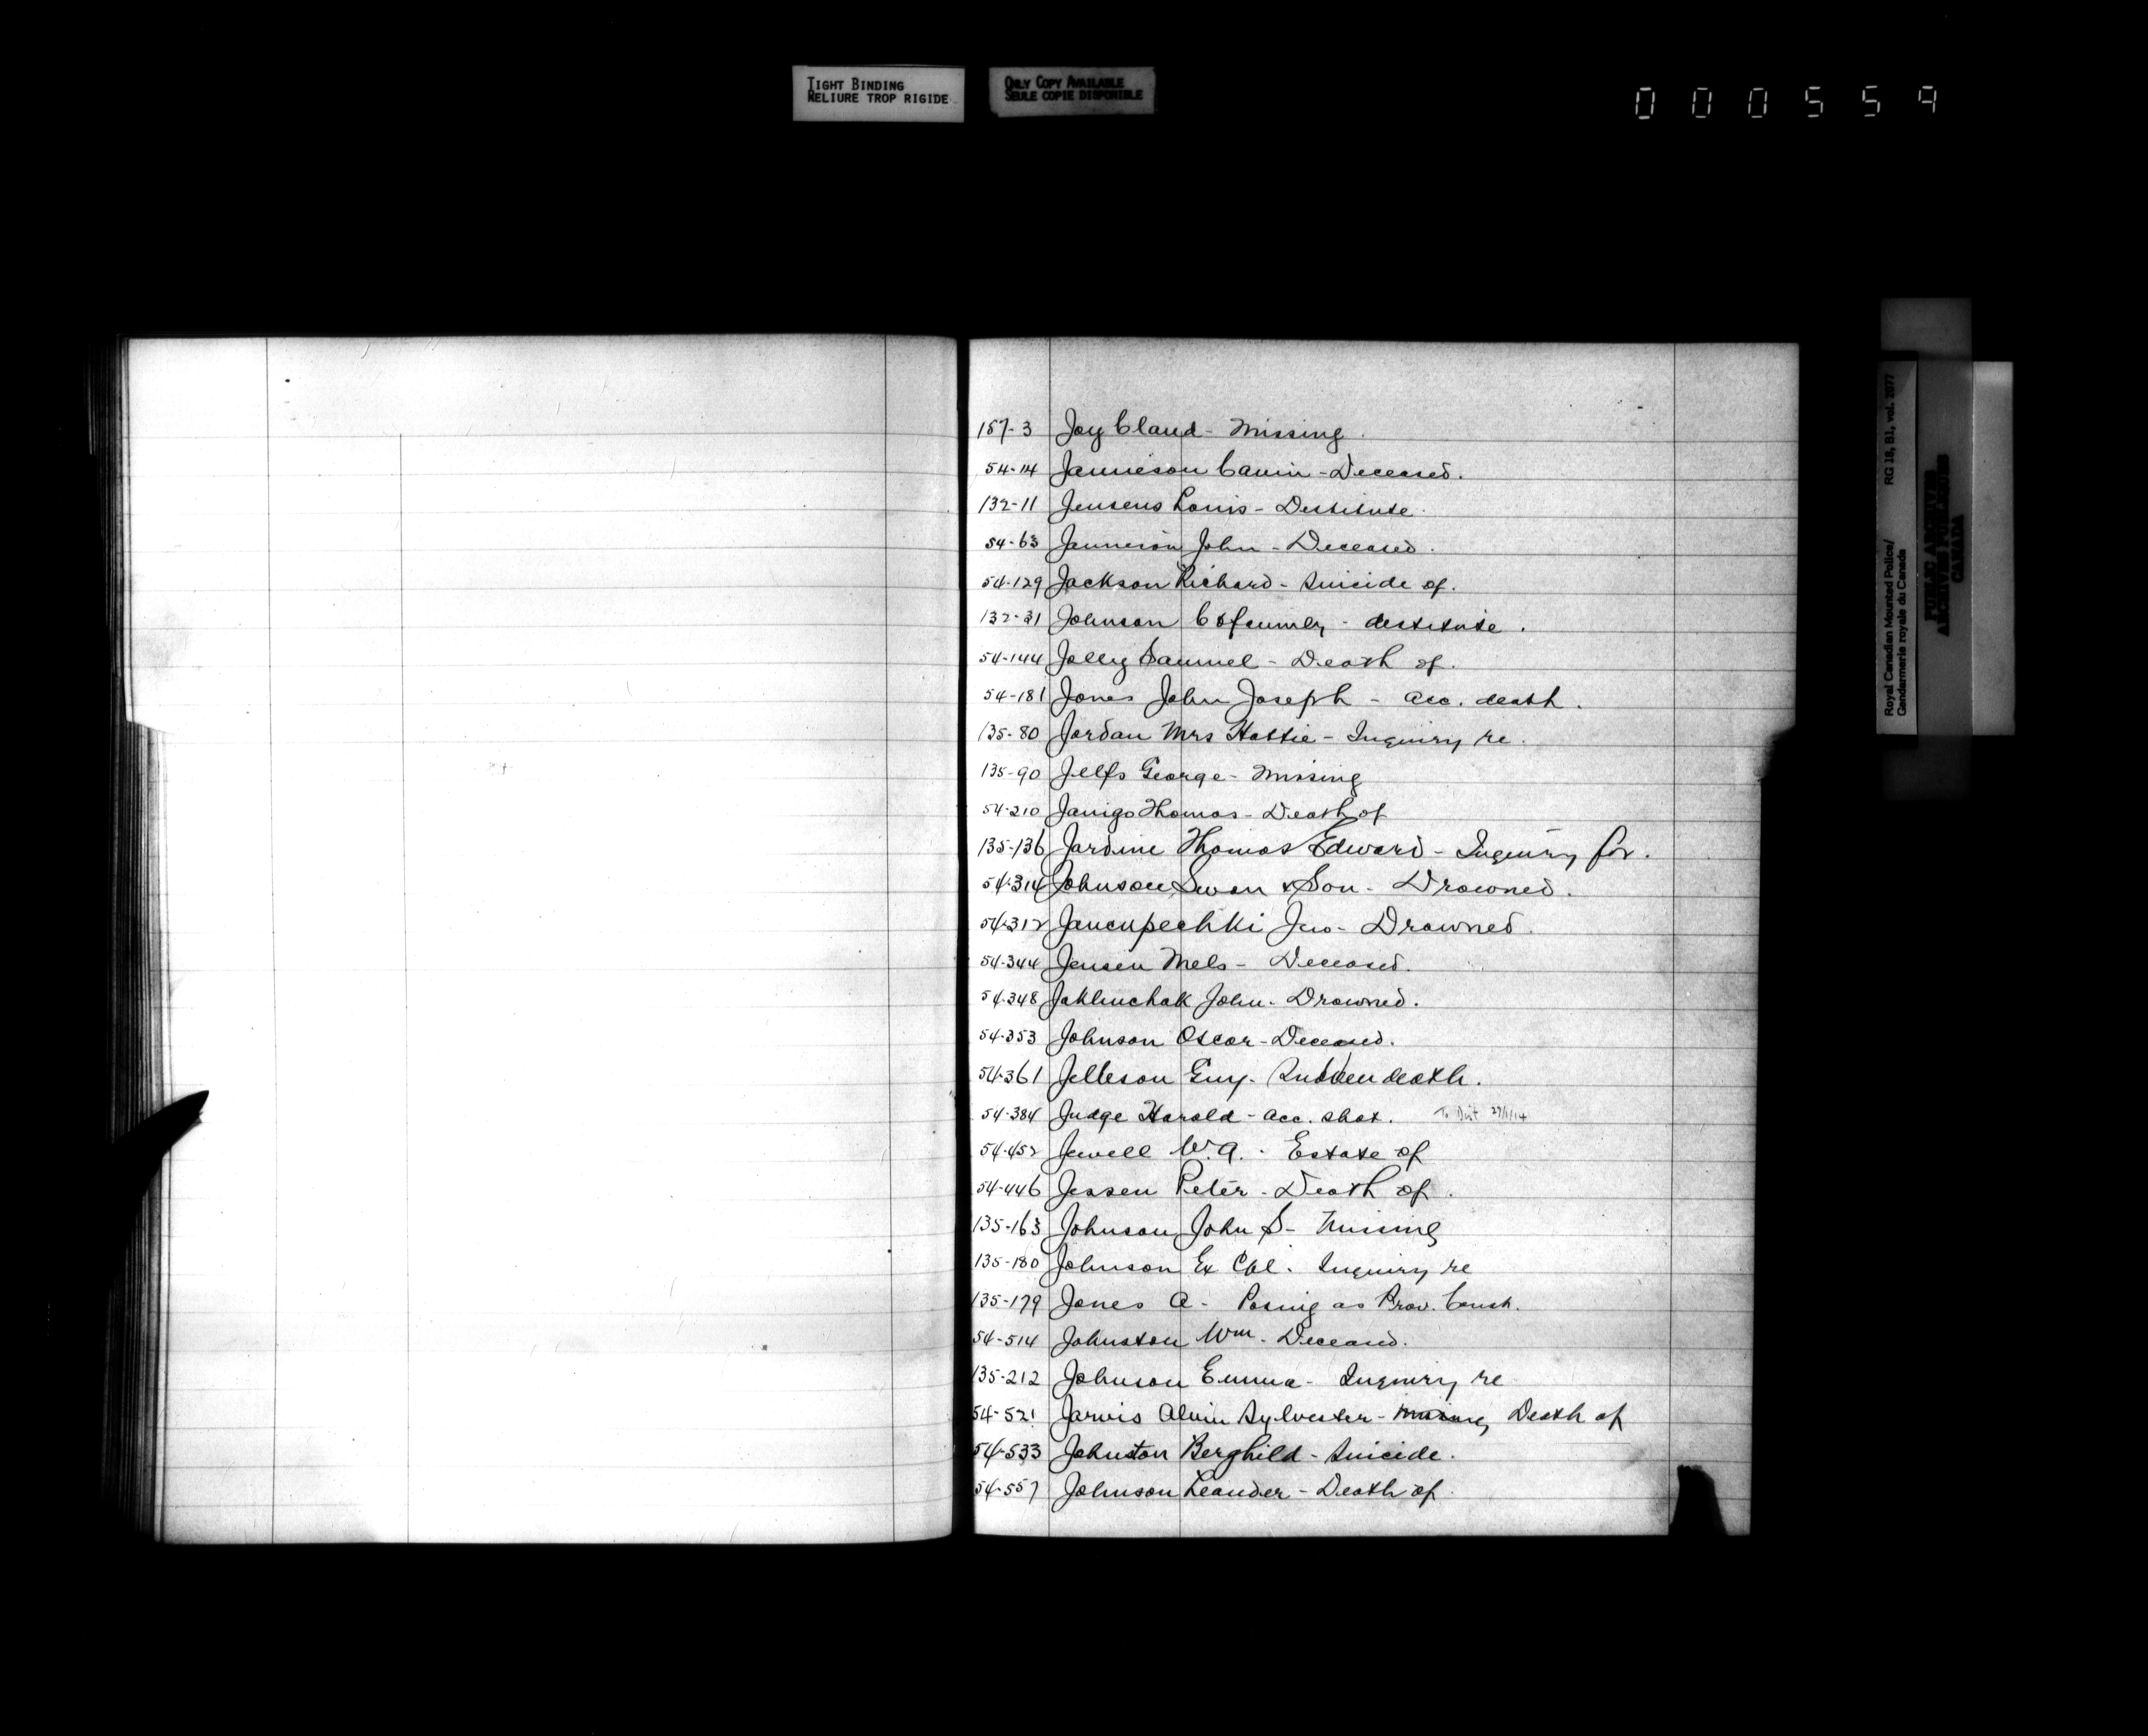 TIGHT BINDING
RELIURE TROP RIGIDE
ONLY COPY AVAILABLE
SEULE COPIE DISPONIBLE
000559
187-3 Joy Claud - Missing.
54-14 Jamieson - Deceased.
132-11 Jensens Louis - Destitute.
54-63 Jameson John - Deceased.
54-129 Jackson Richard - Suicide of.
132-31 Johnson C & family - destitute.
54-144 Jolley Samuel - Death of.
54-181 Jones John Joseph - acc. death.
135-80 Jordan Mrs Hattie - Inquiry re.
135-90 Jelfs George - Missing
54-210 Janigo Thomas - Death of
135-136 Jardine Thomas Edward - Inquiry for.
54-314 Johnson Swan & Son - Drowned.
54-312 Jancupechki Jno - Drowned.
54-344 Jensen Mels - Deceased.
54-348 Jaklinchak John - Drowned.
54-353 Johnson Oscar - Deceased.
54-361 Jelleson Guy - Sudden death.
54-384 Judge Harold - acc. shot. To Dist 29/1/14
54-452 Jewell W.A. - Estate of
54-446 Jessen Peter - Death of.
135-163 Johnson John S - Missing
135-180 Johnson Ex Cpl. Inquiry re
135-179 Jones A - Posing as Prov. Const.
54-514 Johnston Wm. Deceased.
135-212 Johnson Emma - Inquiry re
54-521 Jarvis Alvin Sylvester - Missing Death of
54-533 Johnston Berghild - Suicide.
54-557 Johnson Leander - Death of.
Royal Canadian Mounted Police/ RG 18, B1, vol. 2077
Gendarmerie royale du Canada
PUBLIC ARCHIVES
ARCHIVES PUBLIQUES
CANADA